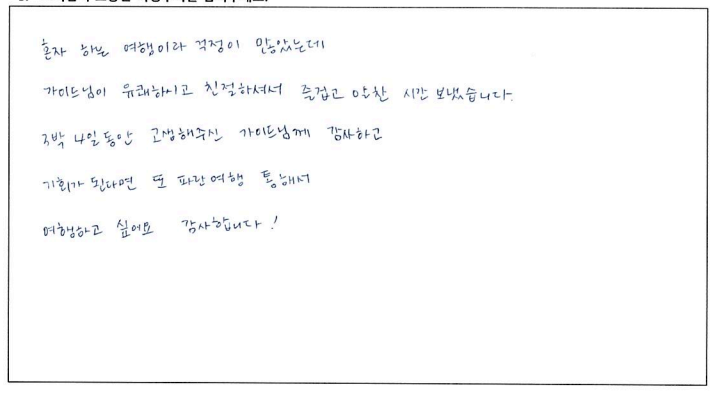 혼자 하는 여행이라 걱정이 많았는데
가이드님이 유쾌하시고 친절하셔서 즐겁고 알찬 시간 보냈습니다.
3박 4일동안 고생해주신 가이드님께 감사하고
기회가 된다면 또 파란여행 통해서
여행하고 싶어요 감사합니다!